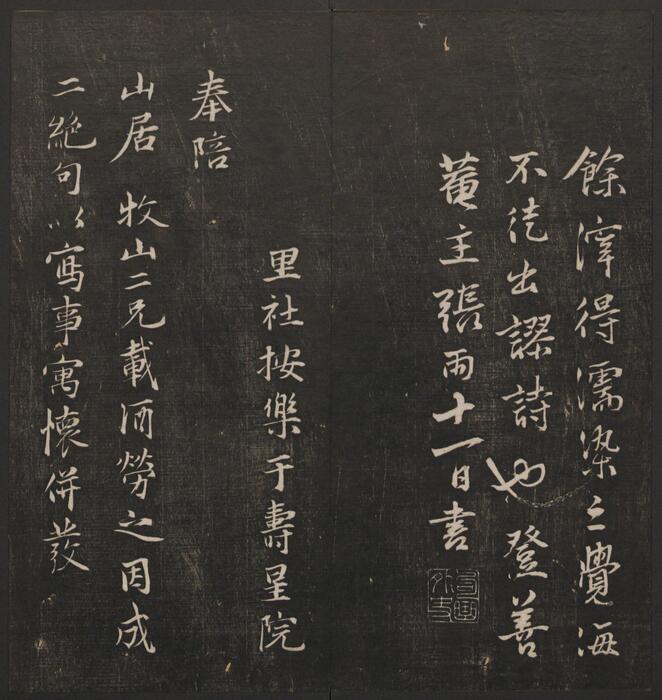 餘滓得濡染之覺海
不徒出謬詩也登善
菴主張雨十一日書
里社按樂于壽星院
奉陪
山居牧山二兄載酒勞之因成
二絕句以寫事寓懷併發